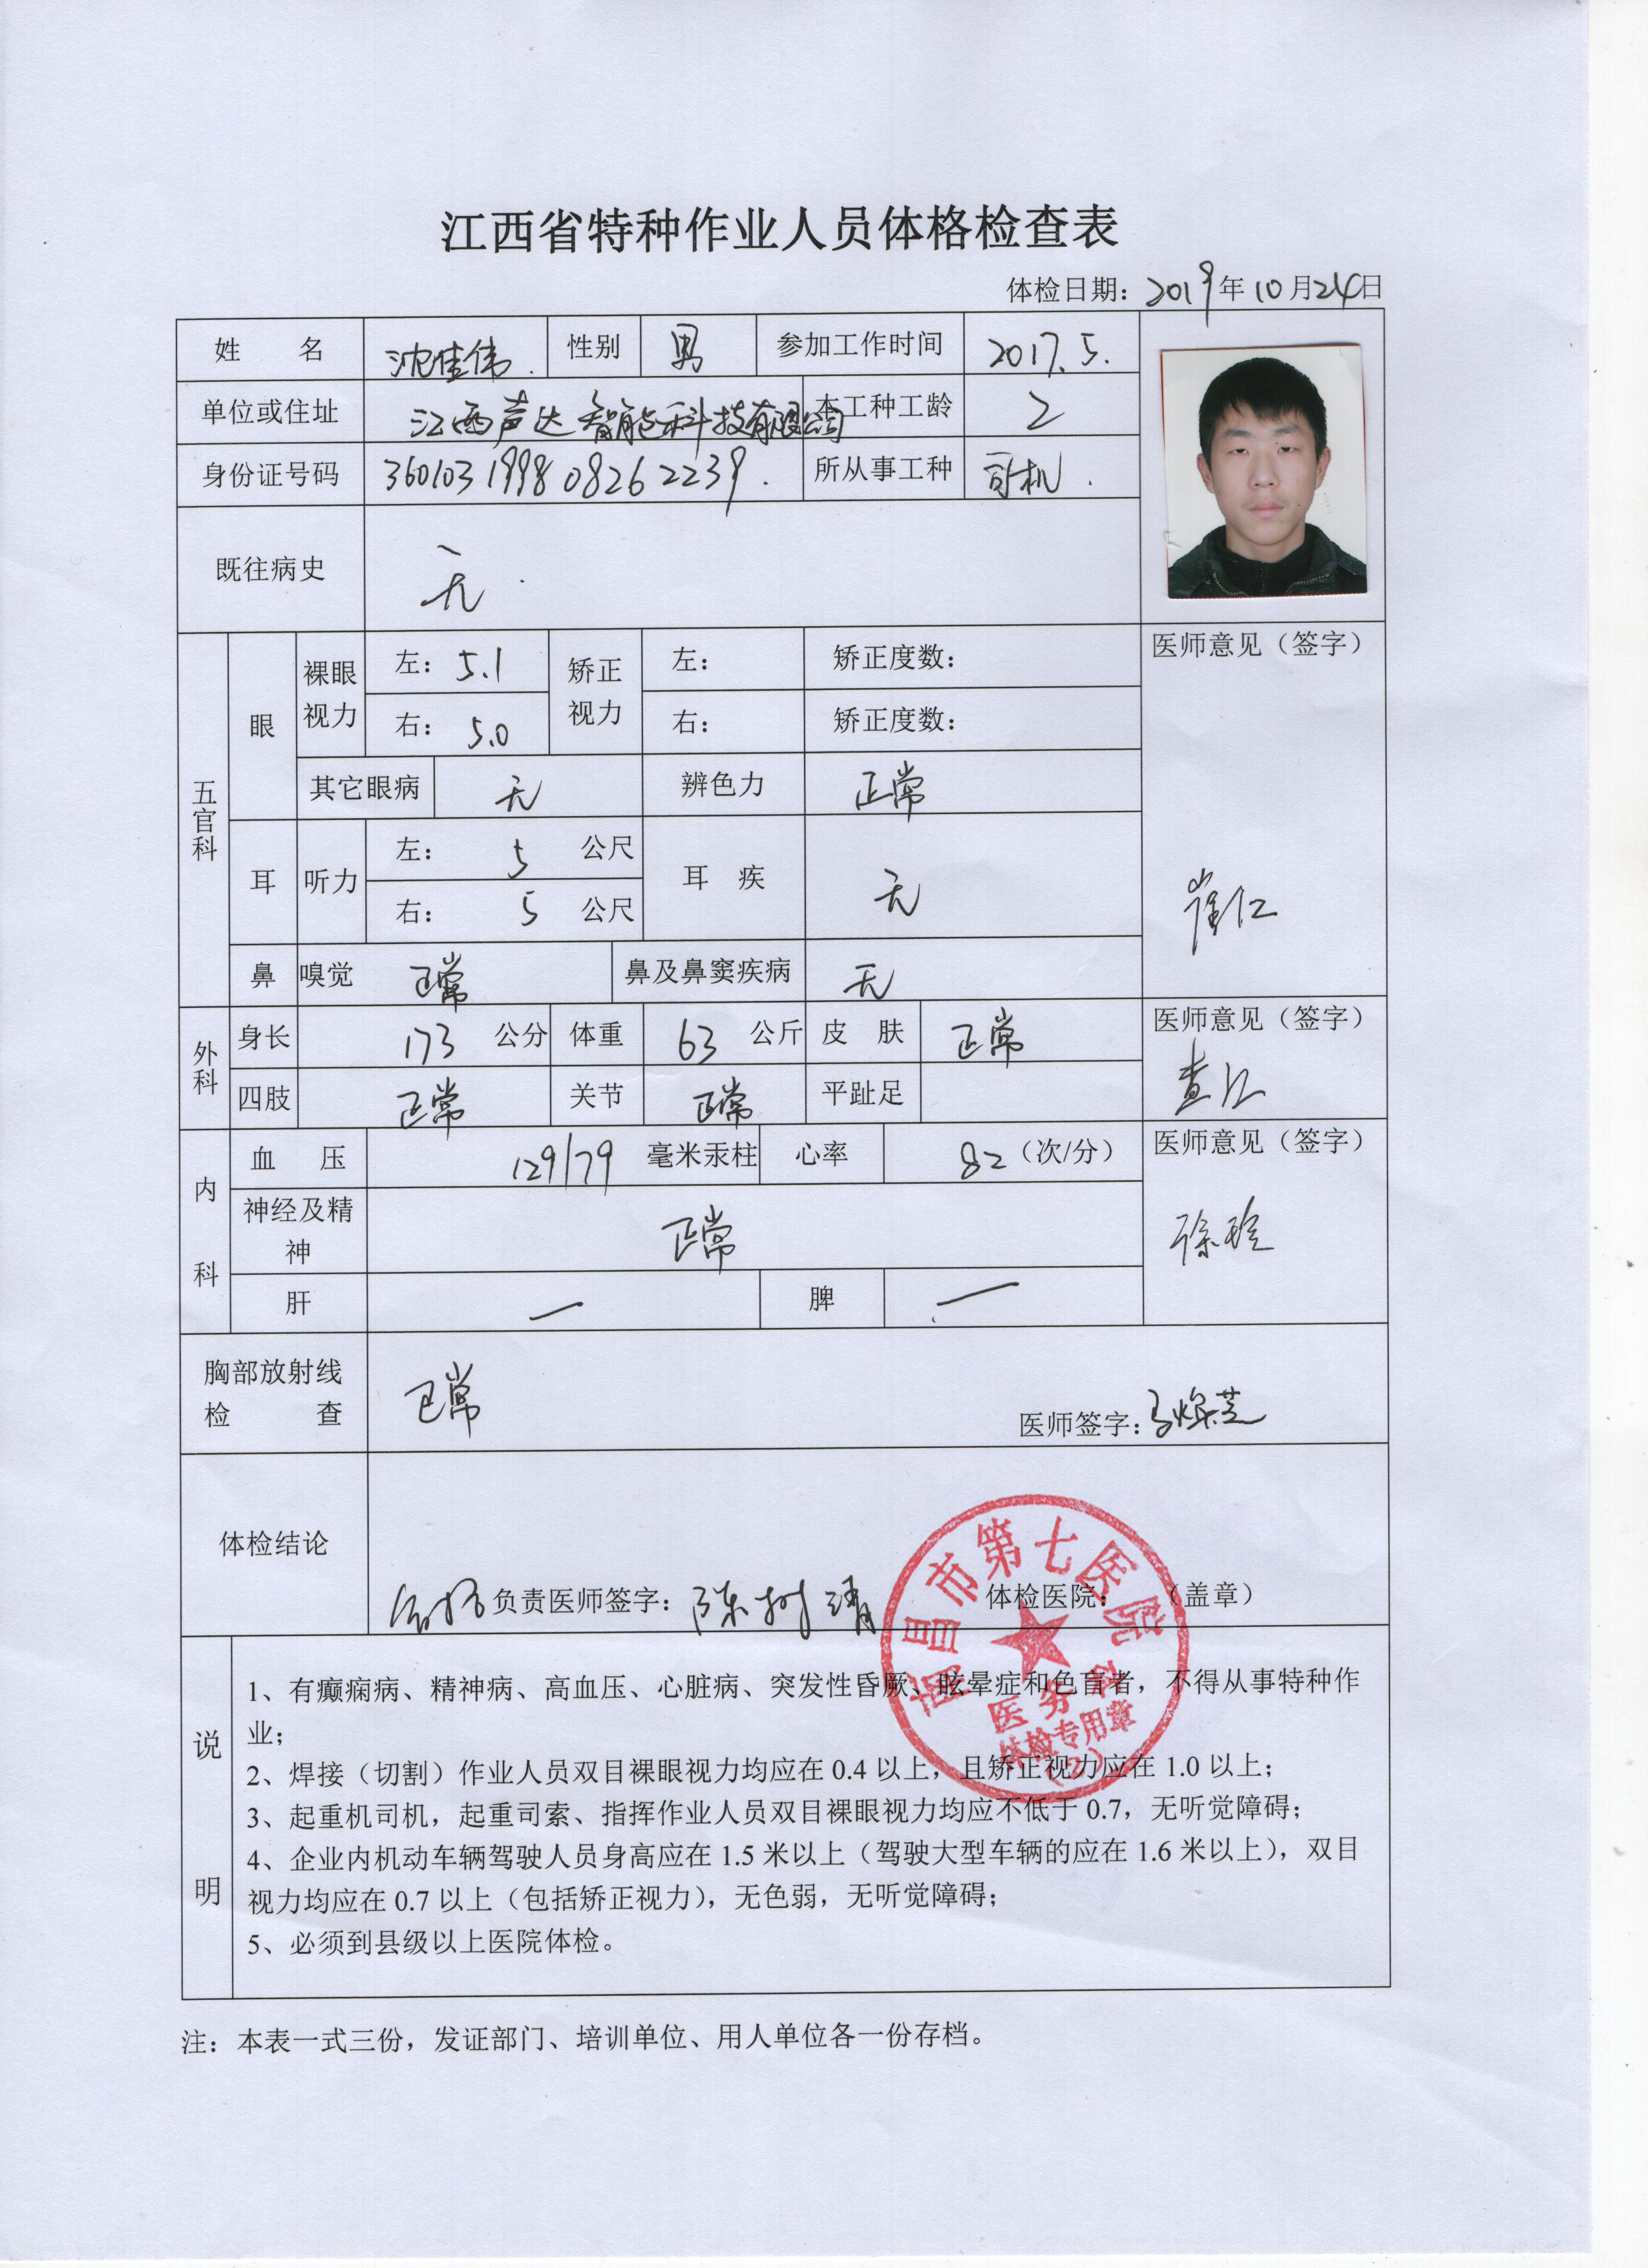 江西省特种作业人员体格检查表
体检日期：2019年10月24日
姓 名 沈佳伟. 性别 男 参加工作时间 2017.5.
单位或住址 江西声达智能科技有限公司 本工种工龄 2
身份证号码 360103199808262239. 所从事工种 司机.
既往病史 无.
五官科 眼 裸眼视力 左：5.1 矫正视力 左： 矫正度数：
右：5.0 右： 矫正度数：
医师意见（签字）
其它眼病 无 辨色力 正常
耳 听力 左：5 公尺 耳 疾 无
右：5 公尺
崔仁
鼻 嗅觉 正常 鼻及鼻窦疾病 无
外科 身长 173 公分 体重 63 公斤 皮 肤 正常 医师意见（签字）
四肢 正常 关节 正常 平趾足
内科 血 压 129/79 毫米汞柱 心率 82（次/分） 医师意见（签字）
神经及精神 正常
肝 — 脾 —
胸部放射线检 查 正常 医师签字：
体检结论 合格 负责医师签字：陈树清 体检医院： （盖章）
南昌市第七医院
医务科
体检专用章
(2)
说明
1、有癫痫病、精神病、高血压、心脏病、突发性昏厥、眩晕症和色盲者，不得从事特种作
业；
2、焊接（切割）作业人员双目裸眼视力均应在 0.4 以上，且矫正视力应在 1.0 以上；
3、起重机司机，起重司索、指挥作业人员双目裸眼视力均应不低于 0.7，无听觉障碍；
4、企业内机动车辆驾驶人员身高应在 1.5 米以上（驾驶大型车辆的应在 1.6 米以上），双目
视力均应在 0.7 以上（包括矫正视力），无色弱，无听觉障碍；
5、必须到县级以上医院体检。
注：本表一式三份，发证部门、培训单位、用人单位各一份存档。